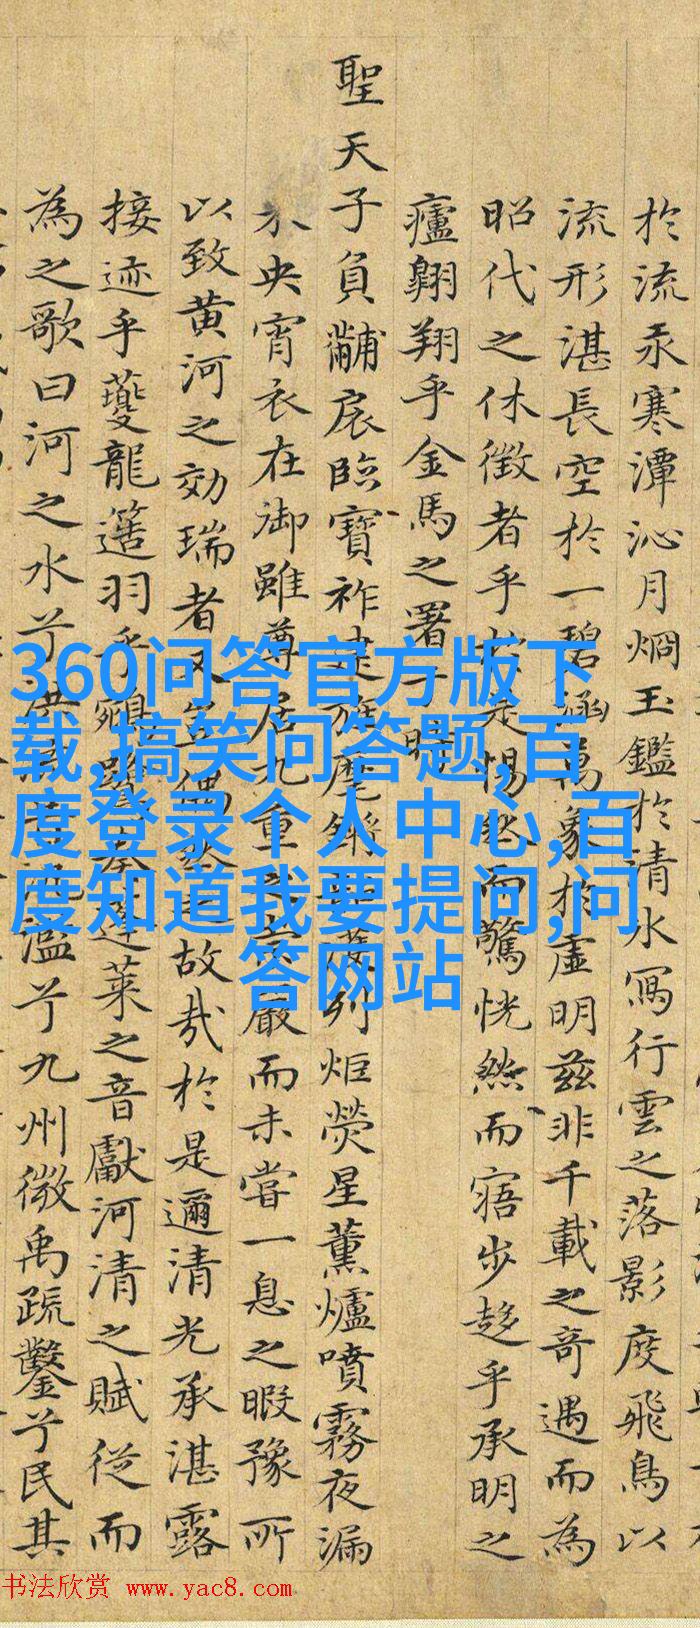 於流汞寒潭沁月烱玉鑑於清水寫行雲之落影度飛鳥以
流形湛長空於一碧涵萬象於虛明茲非千載之奇遇而為
昭代之休徵者乎於是惕然而驚恍然而寤步趍乎承明之
廬翱翔乎金馬之署于時
聖天子負黼扆臨寶祚建麾列炬熒星薰爐噴霧夜漏
未央宵衣在御雖尊居九重之嚴而未嘗一息之暇豫所
以致黃河之効瑞者又豈偶然之故哉於是邇清光承湛露
接迹乎夔龍簉羽乎鵷鷺奏蓬萊之音獻河清之賦從而
為之歌曰河之水兮濫兮九州微禹疏鑿兮民其
360问答官方版下
载,搞笑问答题,百
度登录个人中心,百
度知道我要提问,问
答网站
书法欣赏 www.yac8.com